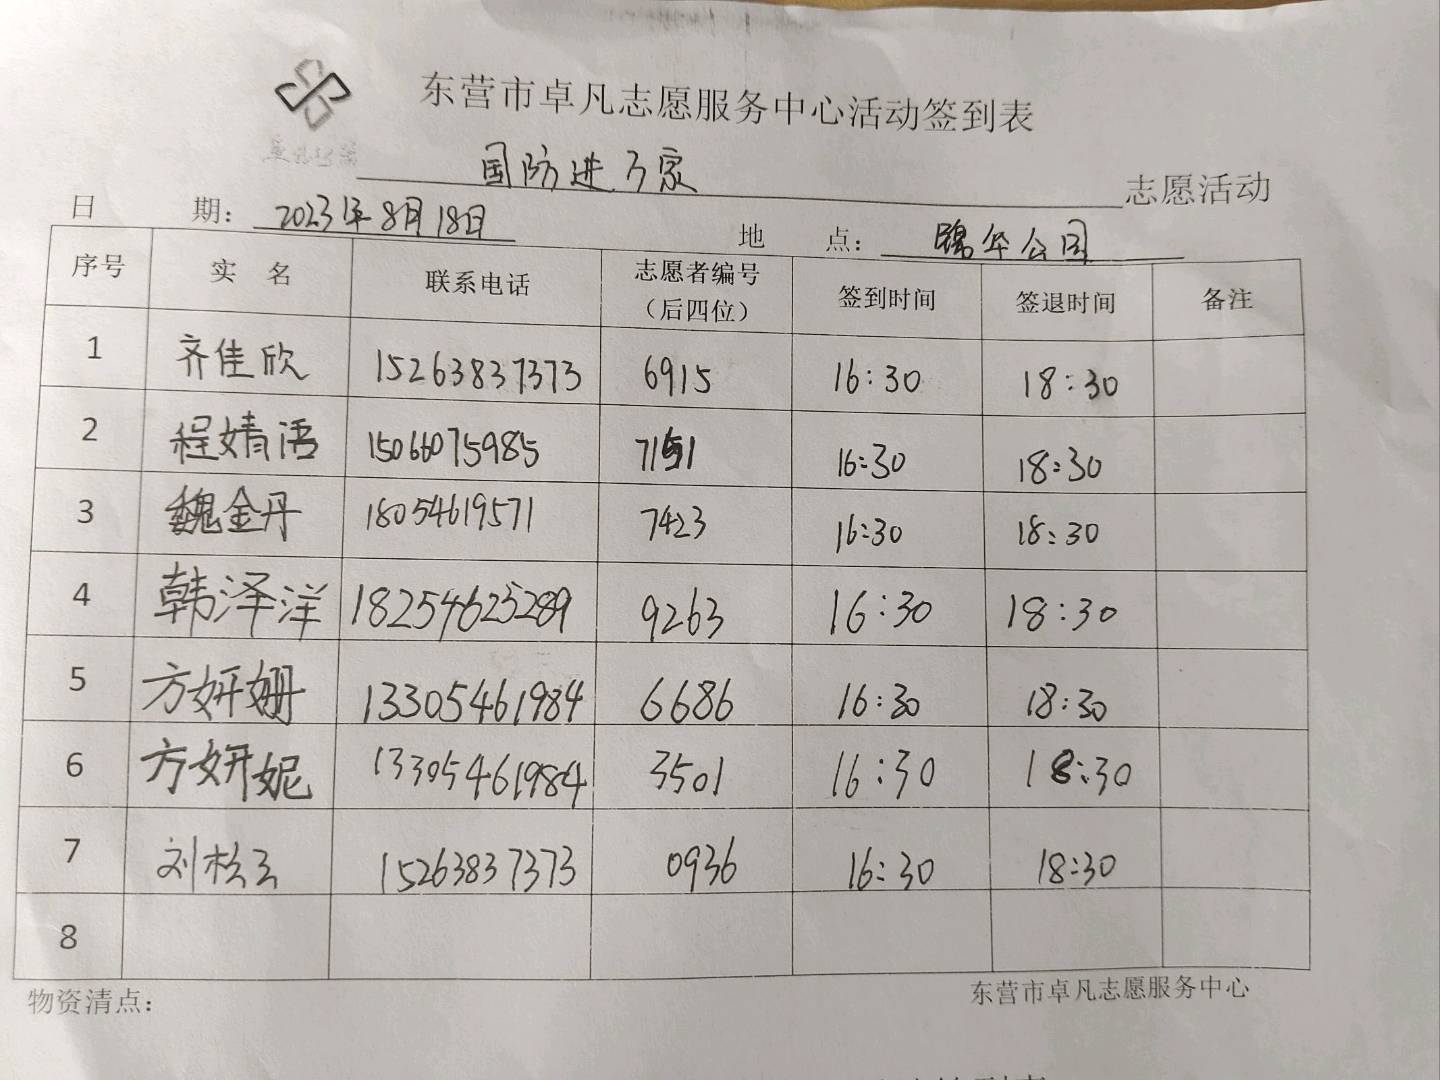 东营市卓凡志愿服务中心活动签到表
国防进万家 志愿活动
日期：2023年8月18日 地点：锦华公园
序号 实名 联系电话 志愿者编号（后四位） 签到时间 签退时间 备注
1 齐佳欣 15263837373 6915 16:30 18:30
2 程婧语 15066075985 7151 16:30 18:30
3 魏金丹 18054619571 7423 16:30 18:30
4 韩泽洋 18254625289 9263 16:30 18:30
5 方妍姗 13305461984 6686 16:30 18:30
6 方妍妮 13305461984 3501 16:30 18:30
7 刘松云 15263837373 0936 16:30 18:30
8
物资清点： 东营市卓凡志愿服务中心